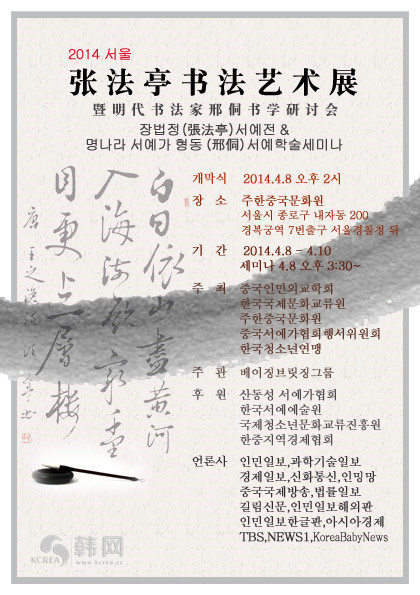 2014 서울
张法亭书法艺术展
暨明代书法家邢侗书学研讨会
장법정(張法亭)서예전 &
명나라 서예가 형동 (邢侗)서예학술세미나
白日依山盡黃河
入海流欲窮千里
目更上一層樓
唐 王之渙
개막식 2014.4.8 오후 2시
장 소 주한중국문화원
서울시 종로구 내자동 200
경복궁역 7번출구 서울경찰청 뒤
기 간 2014.4.8 - 4.10
세미나 4.8 오후 3:30~
주 최 중국인민외교학회
한국국제문화교류원
주한중국문화원
중국서예가협회행서위원회
한국청소년연맹
주 관 베이징브릿징그룹
후 원 산동성 서예가협회
한국서예예술원
국제청소년문화교류진흥원
한중지역경제협회
언론사 인민일보,과학기술일보
경제일보,신화통신,인밍망
중국국제방송,법률일보
길림신문,인민일보해외판
인민일보한글판,아시아경제
TBS,NEWS1,KoreaBabyNews
KCREA 韩网
www.kcrea.cc